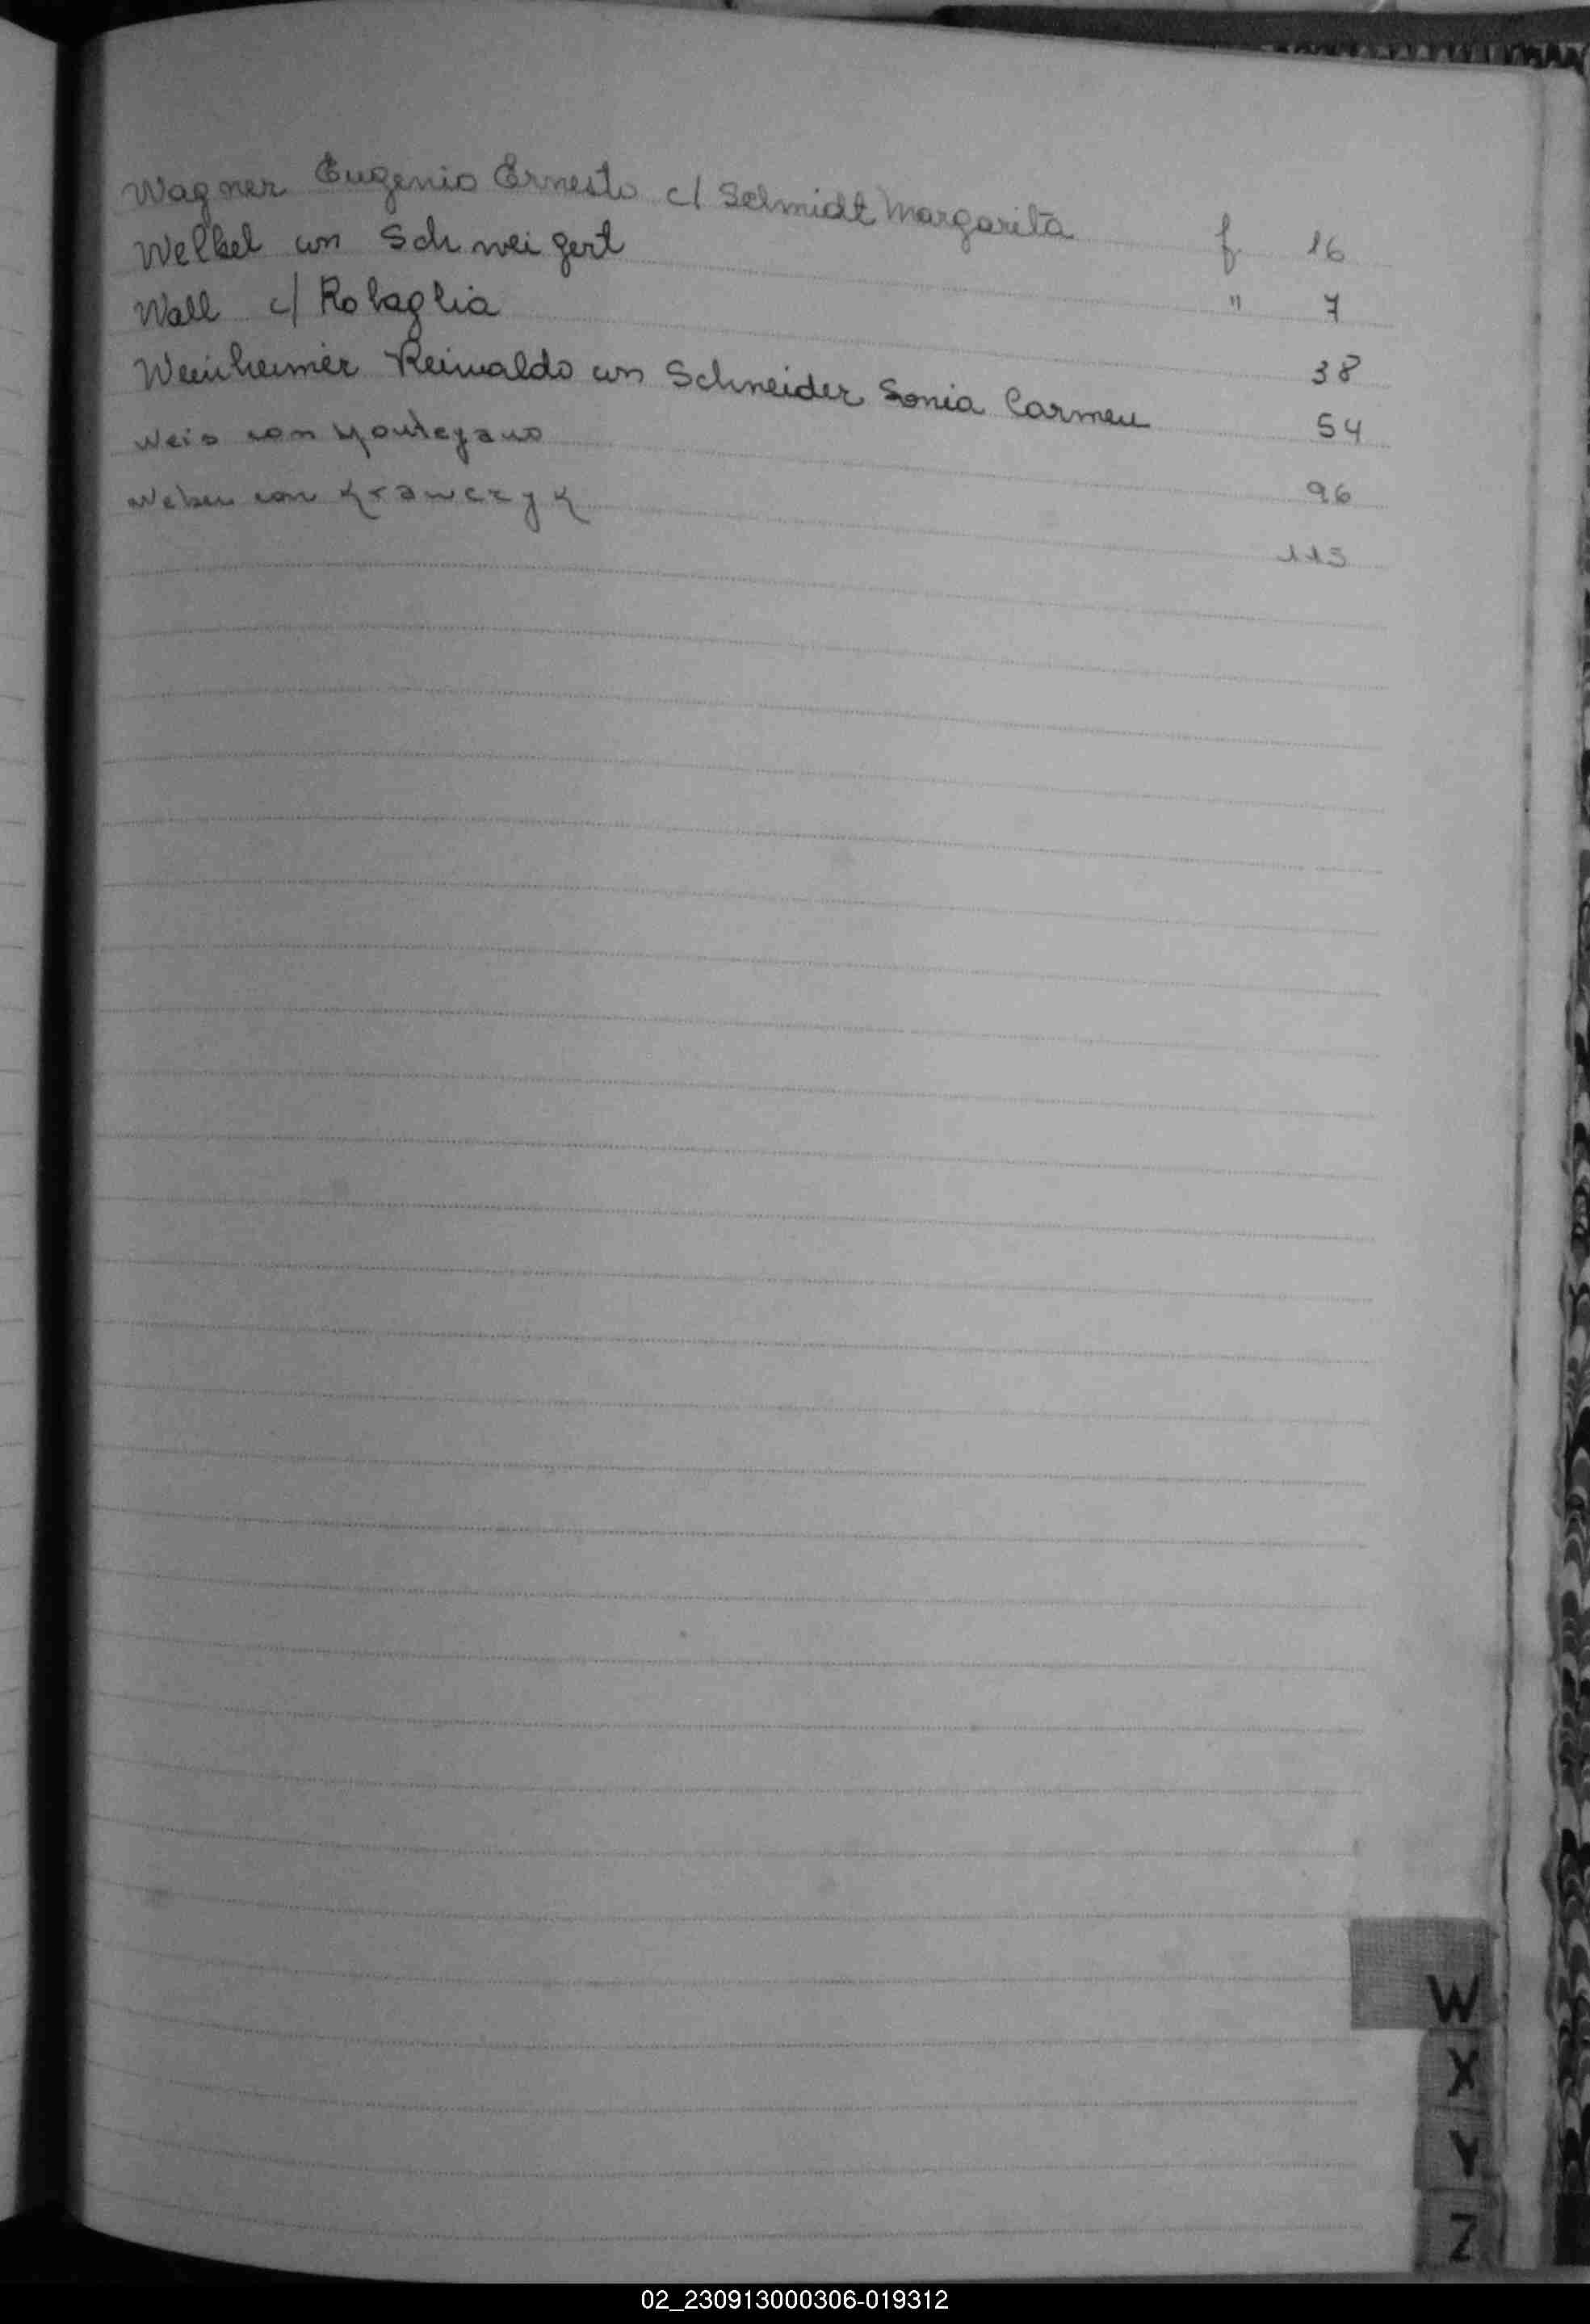 Wagner Eugenio Ernesto c/ Schmidt Margarita f 16
Welbel con Schweigert " 7
Wall c/ Robaglia 38
Weinheimer Reinaldo con Schneider Sonia Carmen 54
Weis con 96
Weber con Krawczyk 113
W
X
Y
Z
02_230913000306-019312